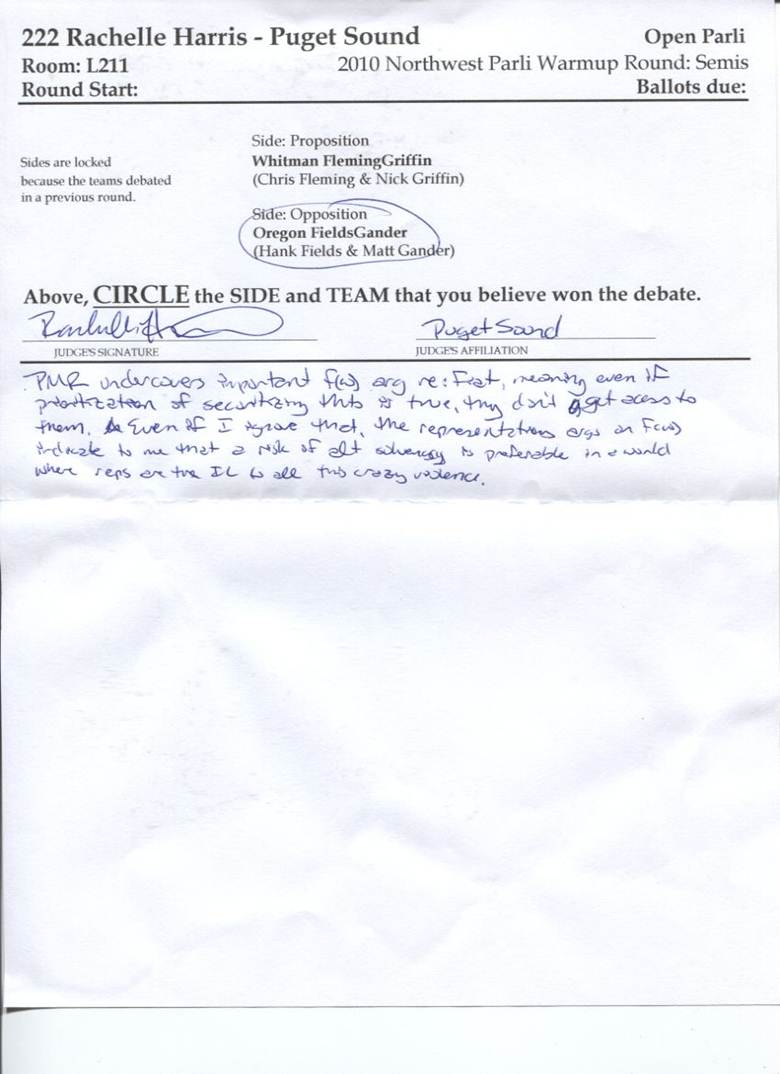 222 Rachelle Harris - Puget Sound Open Parli
Room: L211 2010 Northwest Parli Warmup Round: Semis
Round Start: Ballots due:
Side: Proposition
Sides are locked Whitman FlemingGriffin
because the teams debated (Chris Fleming & Nick Griffin)
in a previous round.
Side: Opposition
Oregon FieldsGander
(Hank Fields & Matt Gander)
Above, CIRCLE the SIDE and TEAM that you believe won the debate.
Puget Sound
JUDGE'S SIGNATURE JUDGE'S AFFILIATION
PMR undercovers important f(w) arg re: Fiat, meaning even if
prioritization of securitizing this is true, they don't get access to
them. Even if I ignore that, the representations args on F(w)
indicate to me that a risk of alt solvency is preferable in a world
where reps are the IL to all this crazy violence.